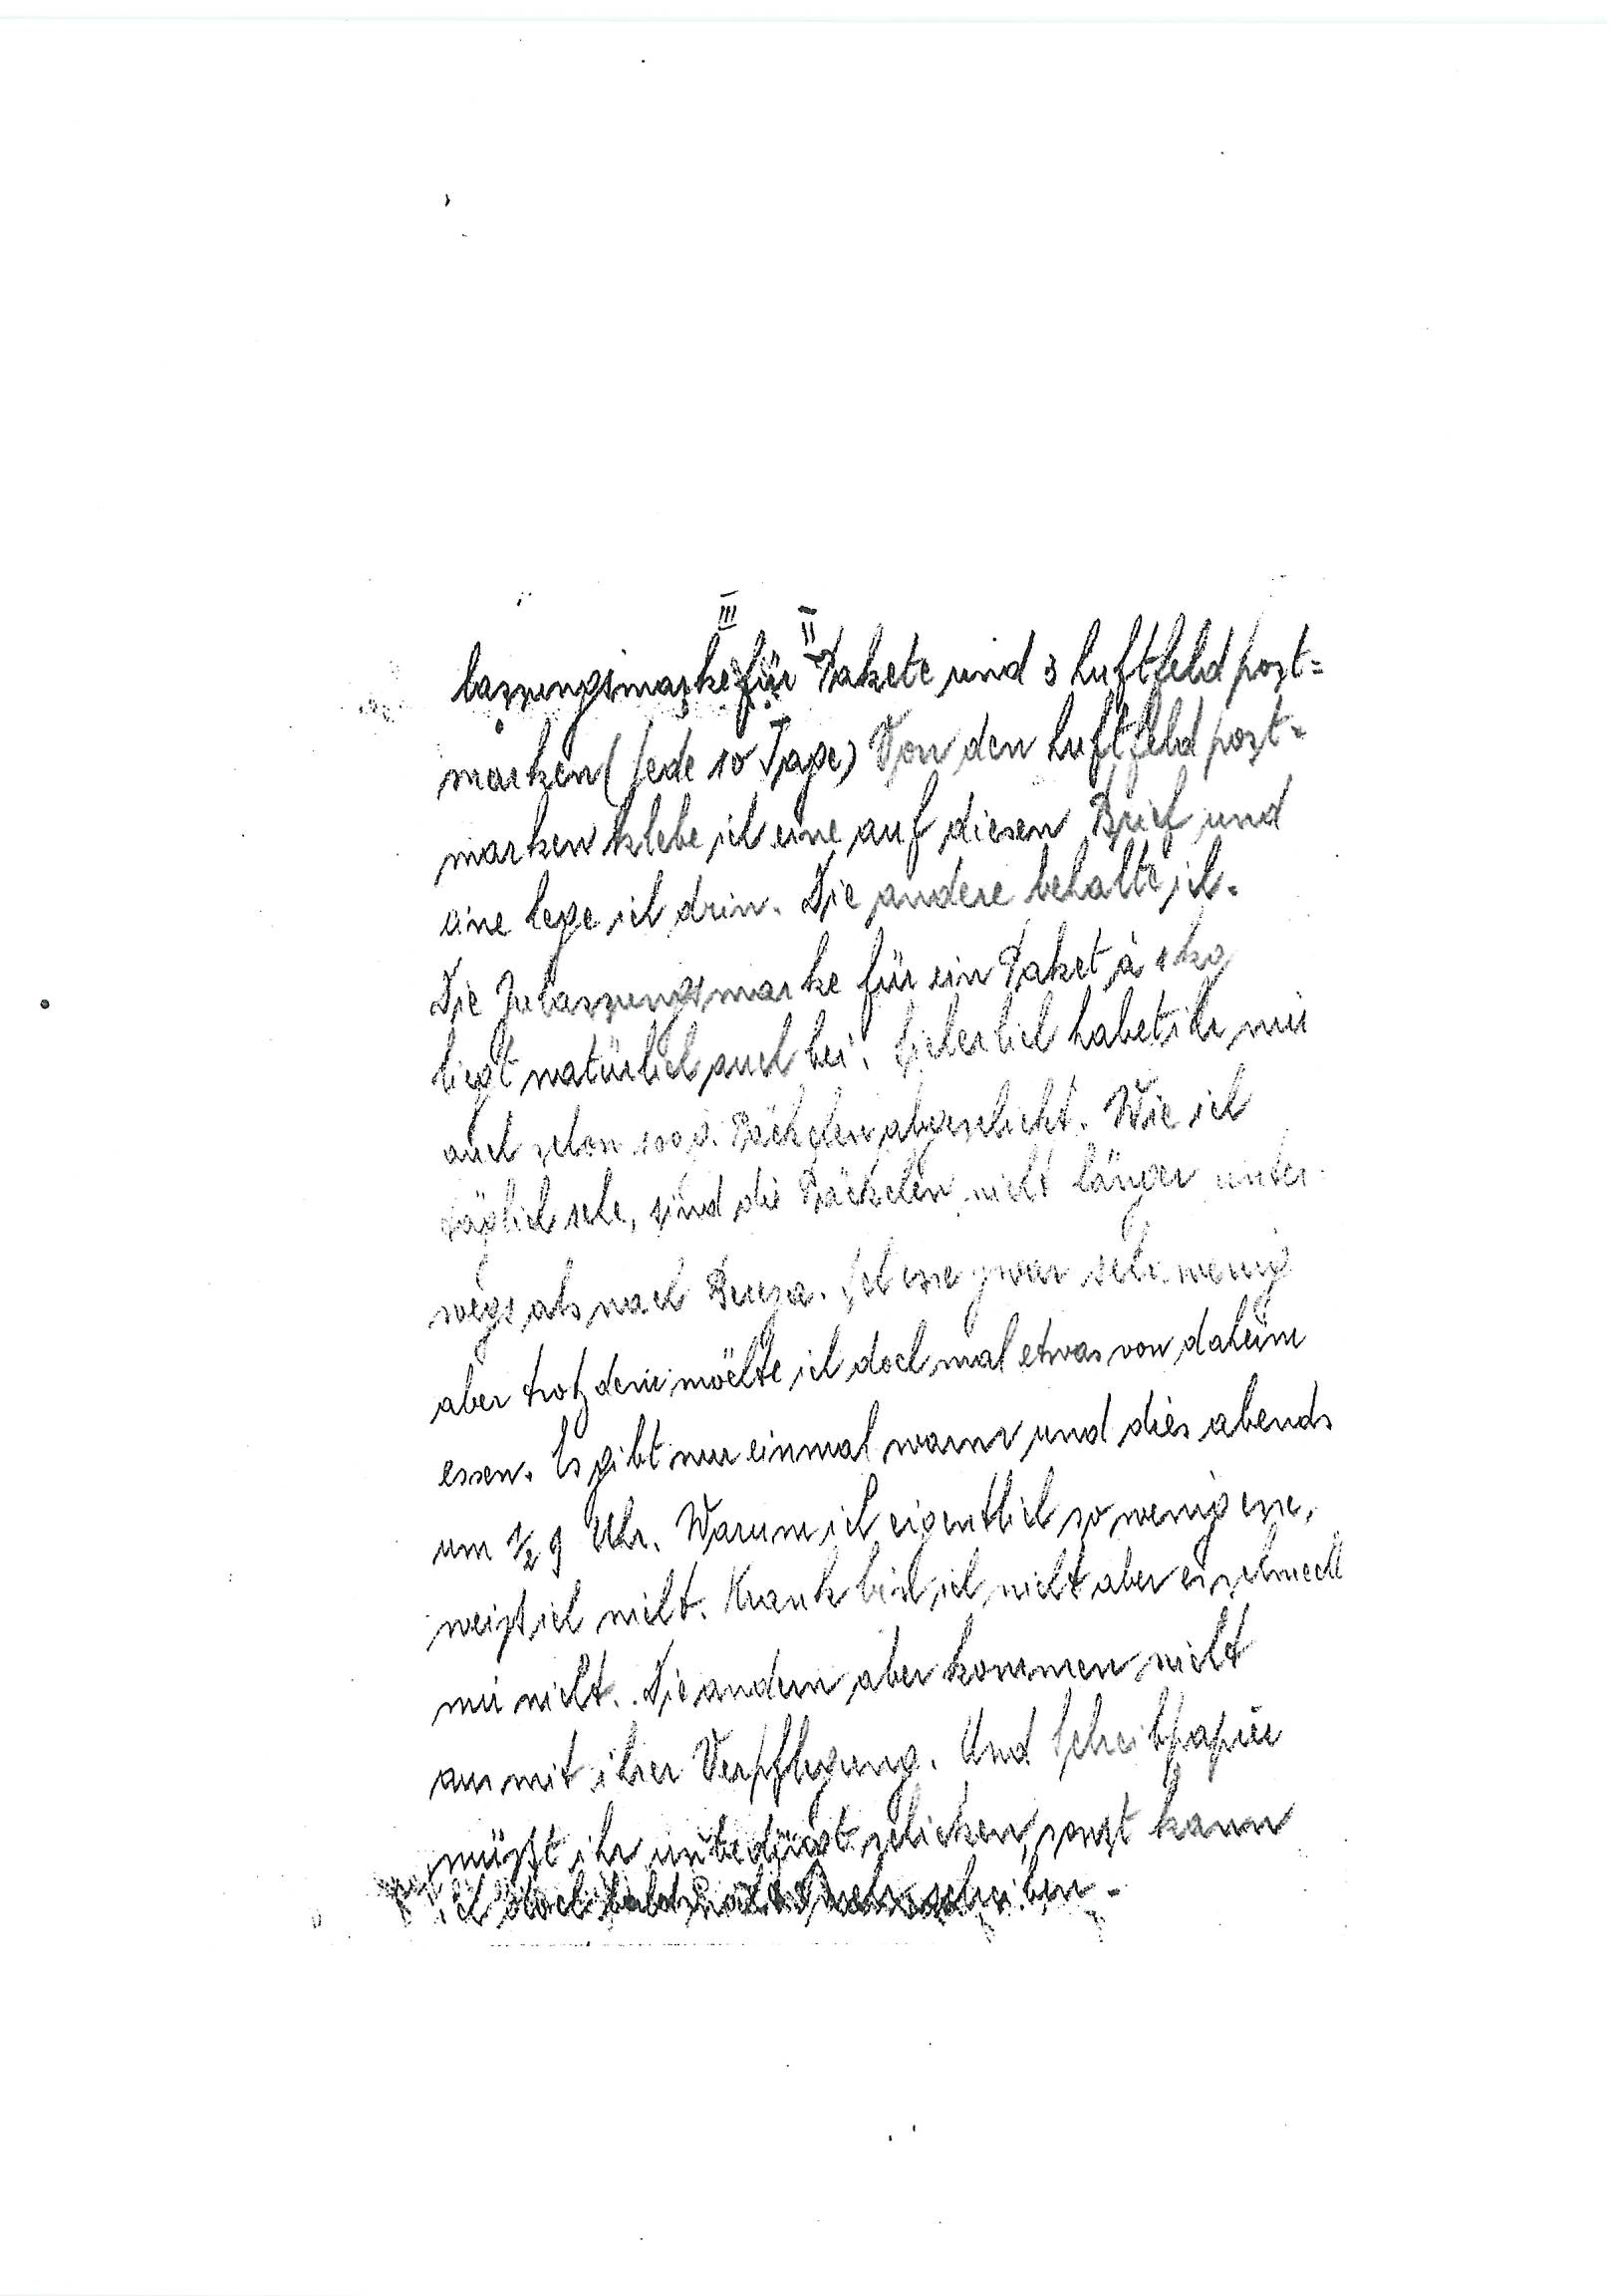 III II
lassungsmarke für Pakete und 3 Luftfeldpost=
marken (jede 10 Tage) Von den Luftfeldpost=
marken klebe ich eine auf diesen Brief und
eine lege ich drin. Die andere behalte ich.
Die Zulassungsmarke für ein Paket à 1 kg
liegt natürlich auch bei. Sicherlich habet ihr mir
auch schon 100 g. Päckchen abgeschickt. Wie ich
täglich sehe, sind die Päckchen nicht länger unter-
wegs als nach . Ich esse zwar sehr wenig
aber trotzdem möchte ich doch mal etwas von daheim
essen. Es gibt nur einmal warm und dies abends
um ½ 9 Uhr. Warum ich eigentlich so wenig esse,
weiß ich nicht. Krank bin ich nicht aber es schmeckt
mir nicht. Die andern aber kommen nicht
aus mit ihrer Verpflegung. Und Schreibpapier
müßt ihr unbedingt schicken, sonst kann
ich doch bald nicht mehr schreiben.